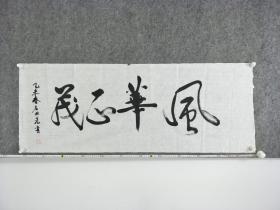 風華正茂
乙未春